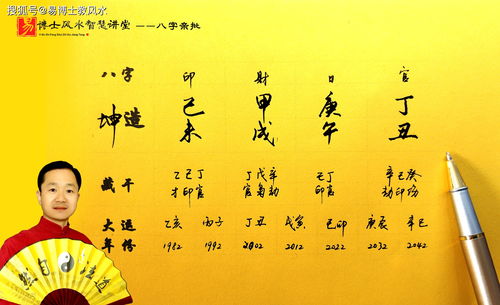 搜狐号@易博士救风水
易 博士风水智慧讲堂 ——八字亲批
八字 印 财 日 官
坤造 己未 甲戌 庚午 丁丑
藏干 乙己丁 丁戊辛 己丁 辛己癸
才印官 官枭劫 印官 劫印伤
大运 乙亥 丙子 丁丑 戊寅 己卯 庚辰 辛巳
年份 1982 1992 2002 2012 2022 2032 2042